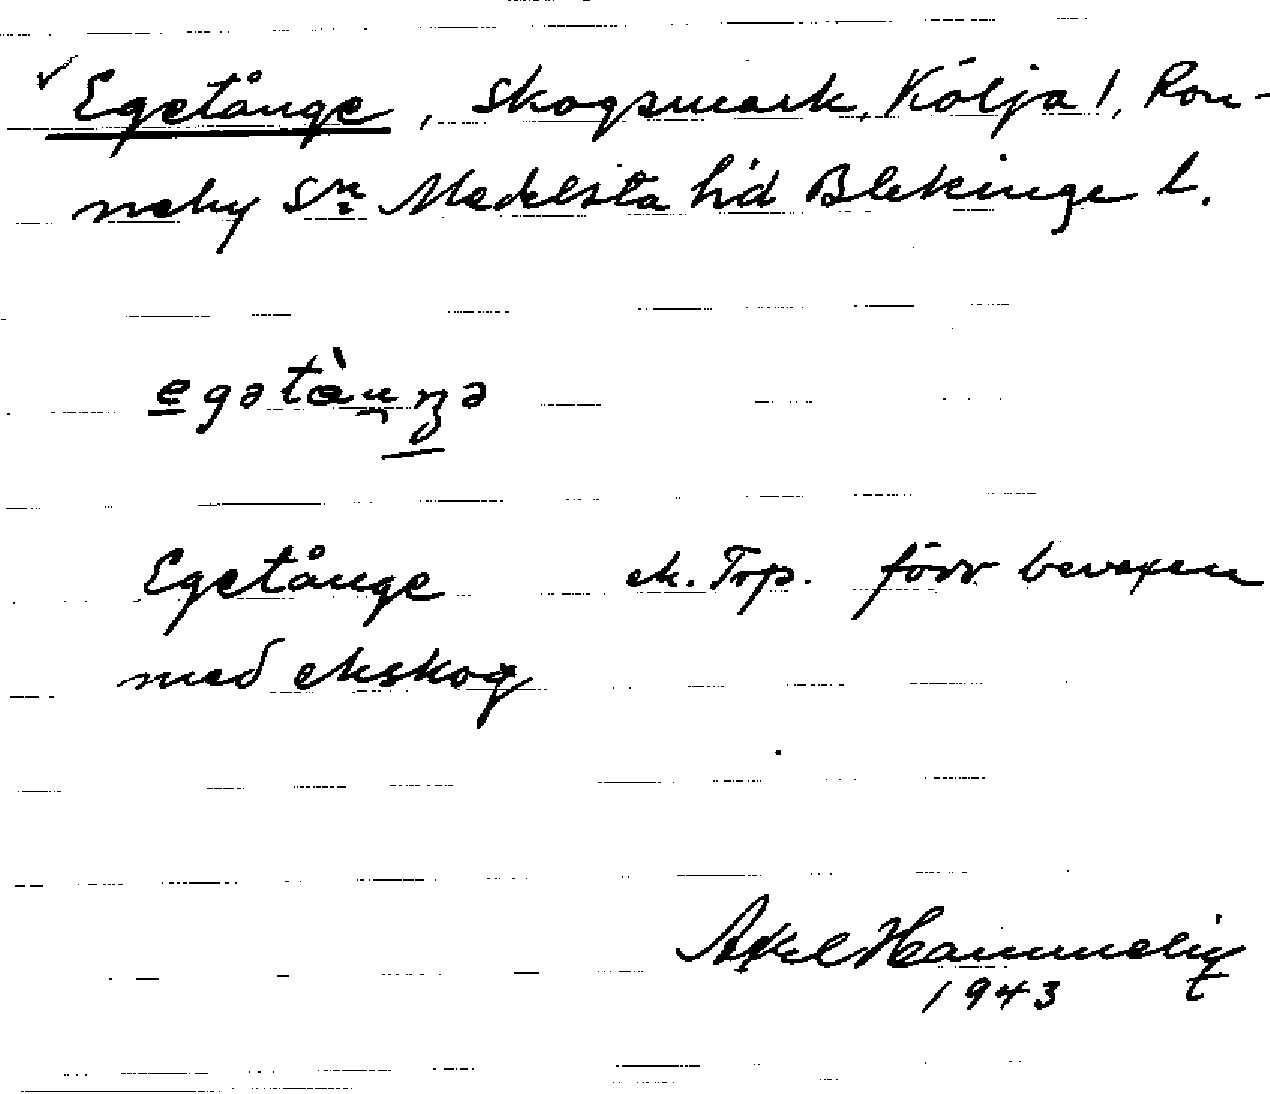 ✓ Egetånge, Skogsmark, Kölja 1, Ron-
neby Sn Medelsta hd Blekinge l.
Egetånge ek. Trp. förr bevuxen
med ekskog
Axel Hammelig
1943